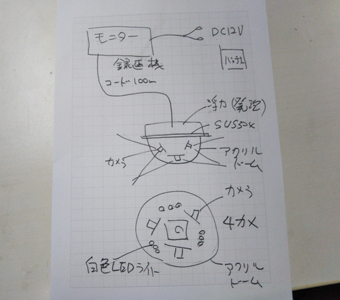 モニター
DC12V
録画機
コード100m
浮力(発泡)
SUS304
カメラ
アクリル
ドーム
カメラ
4カメ
白色LEDライト
アクリル
ドーム